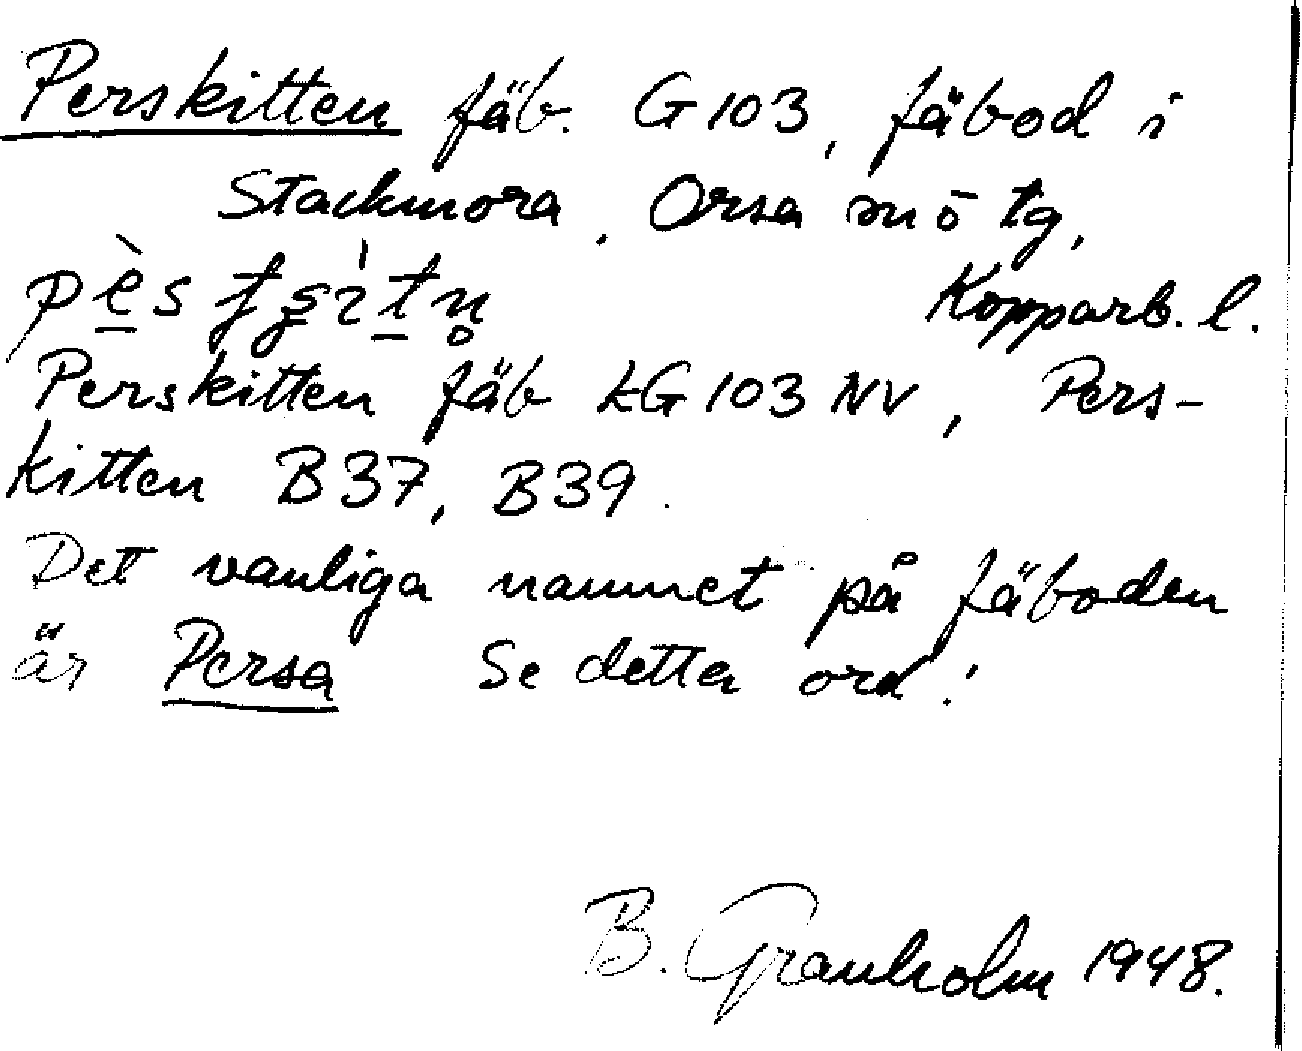 Perskitten fäb. G 103, fäbod i
Stackmora, Orsa sn ö tg,
Kopparb. l.
Perskitten fäb LG 103 NV, Pers-
kitten B 37, B 39.
Det vanliga namnet på fäboden
är Persa Se detta ord!
B. Granholm 1948.